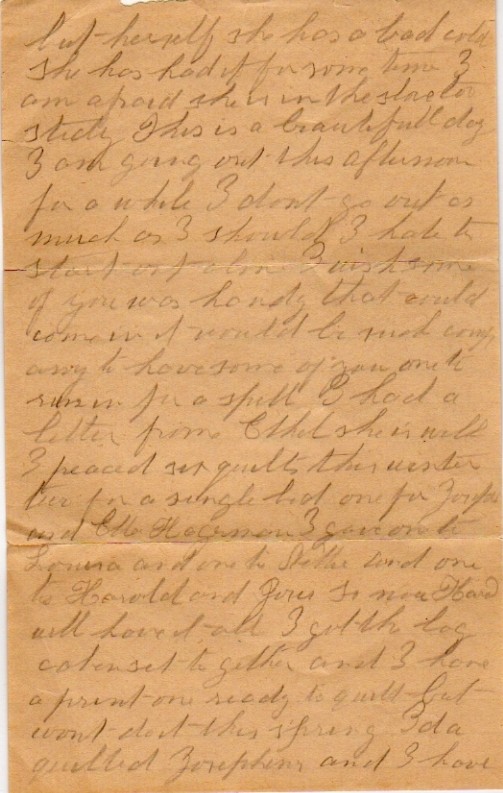 but herself she has a bad cold
she has had it for some time I
am afraid she is in the
study This is a beautifull day
I am going out this afternoon
for a while I dont go out as
much as I should I hate to
start out alone I wish some
of you was handy that could
come in it would be such comp
any to have some of you one to
run in for a spell I had a
letter from Ethel she is well
I peaced six quilts this winter
for a single bed one for
and Hageman I gave one to
Louisa and one to Nettie and one
to Harold and so now
will have it all I got the log
caben set to gether and I have
a print one ready to quilt but
wont do it this spring Ida
quilted Josephens and I have